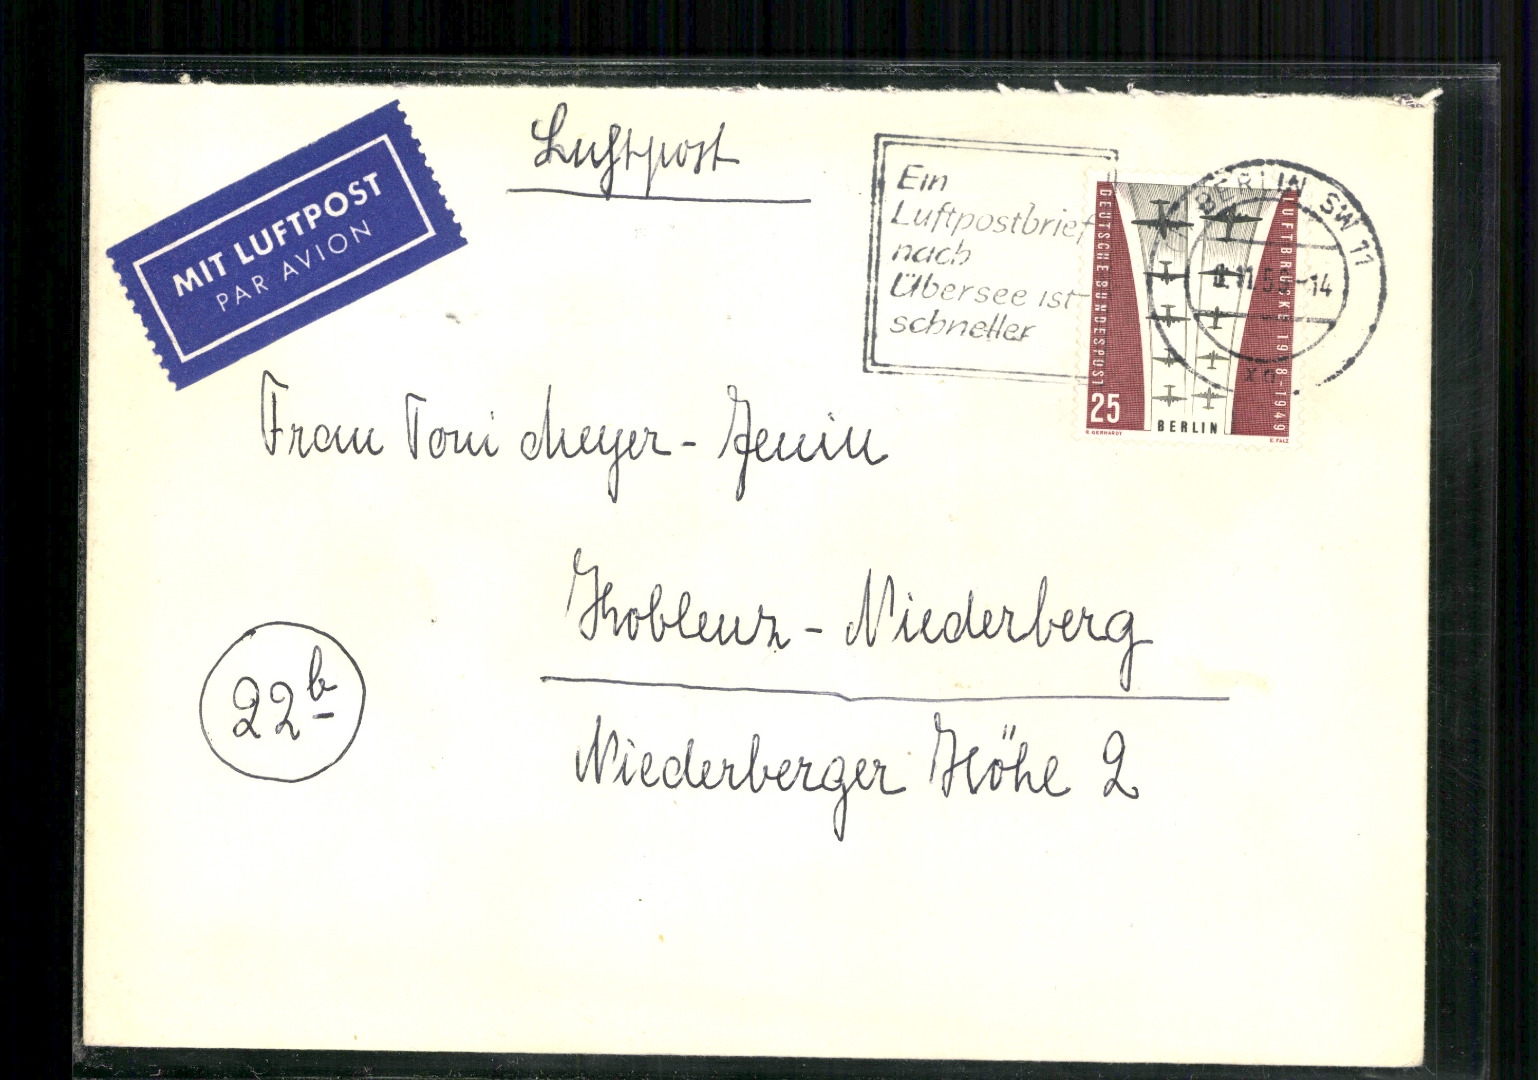 MIT LUFTPOST
PAR AVION
Luftpost
Ein
Luftpostbrief
nach
Übersee ist
schneller
BERLIN SW 11
-14
DEUTSCHE BUNDESPOST
LUFTBRÜCKE 1948-1949
25
BERLIN
E. GERHARDT
E. FALZ
Frau Toni Meyer-Jenin
Koblenz-Niederberg
22b
Niederberger Höhe 2